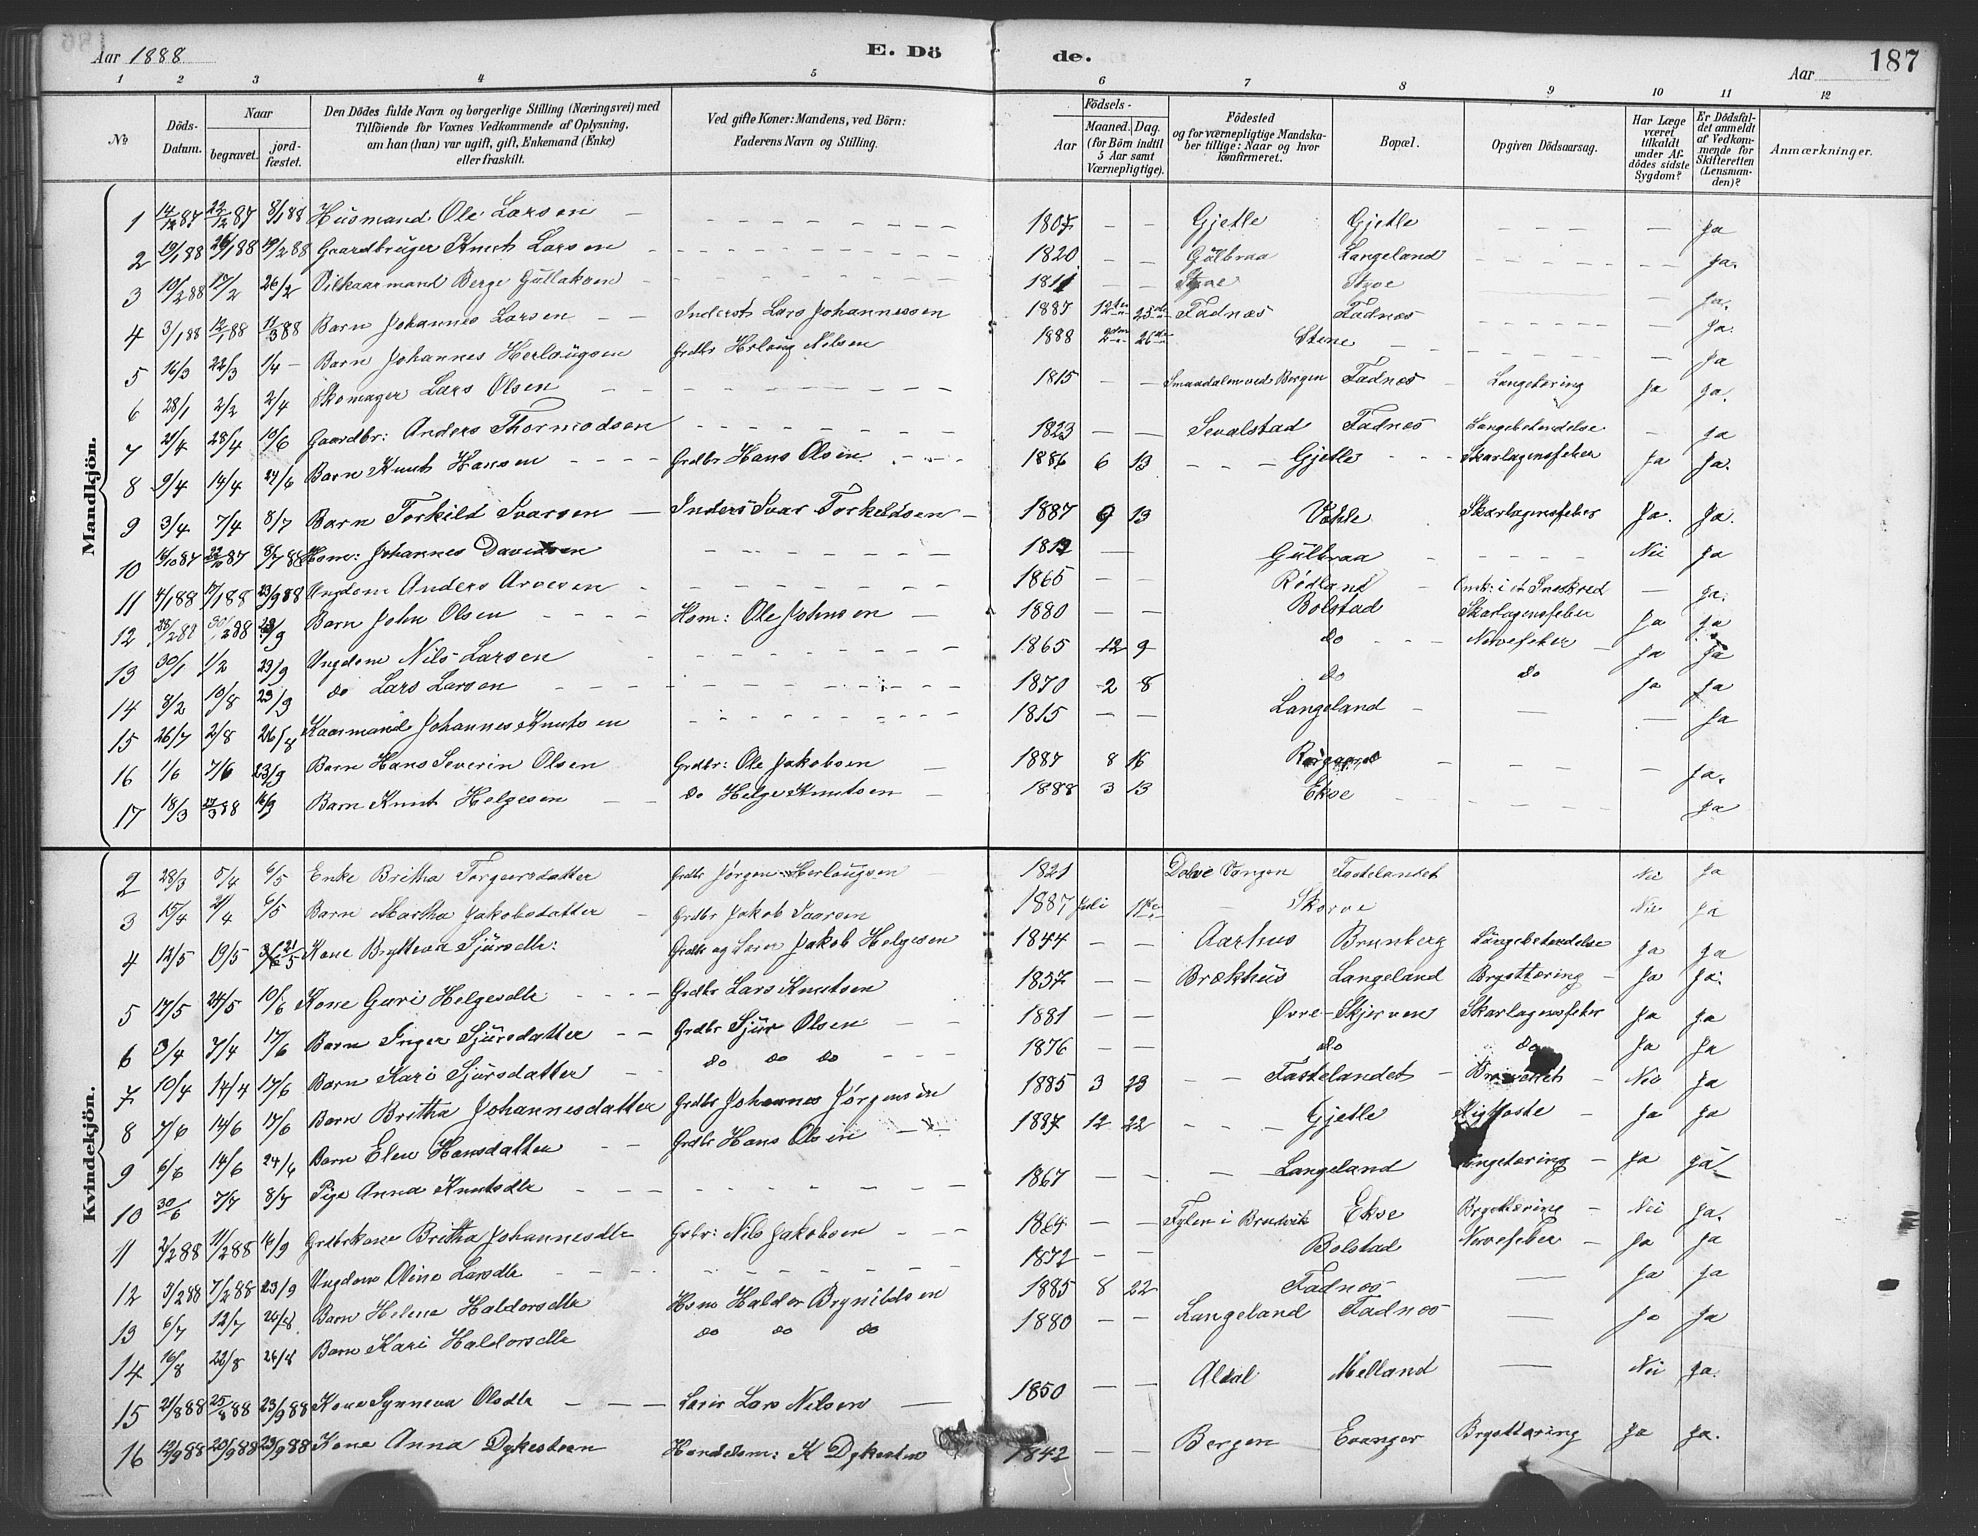 Aar 1888. E. Dö de. Aar 187
1 2 3 4 5 6 7 8 9 10 11 12
No Döds-Datum. Naar begravet. jord-fæstet. Den Dödes fulde Navn og borgerlige Stilling (Næringsvei) med Tilföiende for Voxnes Vedkommende af Oplysning, om han (hun) var ugift, gift, Enkemand (Enke) eller fraskilt. Ved gifte Koner: Mandens, ved Börn: Faderens Navn og Stilling. Födsels- Aar Maaned. Dag. (for Börn indtil 5 Aar samt Værnepligtige). Födested og for værnepligtige Mandskaber tillige: Naar og hvor konfirmeret. Bopæl. Opgiven Dödsaarsag. Har Læge været tilkaldt under Afdödes sidste Sygdom? Er Dödsfaldet anmeldt af Vedkommende for Skifteretten (Lensmanden)? Anmærkninger.
Mandkjön.
1 14/12 87 22/12 87 8/1 88 Husmand Ole Larsen 1807 Gjetle Gjetle Ja
2 19/1 88 26/1 88 19/2 88 Gaardbruger Knut Larsen 1820 Gülbraa Langeland Ja.
3 10/2 88 17/2 26/2 Vilkaarmand Berge Gullaksen 1811 Styve Styve Ja.
4 3/1 88 12/1 88 11/3 88 Barn Johannes Larsen Inderst Lars Johannessen 1887 12te 25de Fadnes Fadnes Ja.
5 16/3 22/3 1/4 Barn Johannes Herlaugsen Grdbr Herlaug Nilsen 1888 2den 26de Stene Ja
6 28/1 2/2 2/4 Skomager Lars Olsen 1815 Smaadalen ved Bergen Fadnes Langetæring Ja Ja.
7 21/4 28/4 10/6 Gaardbr: Anders Thormodsen 1823 Sevalstad Fadnes Langebetendelse Ja
8 9/4 14/4 24/6 Barn Knut Hansen Grdbr Hans Olsen 1886 6 13 Gjetle Skarlagensfeber Ja Ja.
9 3/4 7/4 8/7 Barn Torkild Ivarsen Inders Ivar Torkeldsen 1887 9 13 Væhle Skarlagensfeber Ja. Ja.
10 14/10 87 22/10 87 8/7 88 Hsm: Johannes Davidsen 1812 Gülbraa Nei Ja
11 4/1 88 17/1 88 23/9 88 Ungdom Anders Arvesen 1865 Rødland Omk: i et Sneskred Ja.
12 28/2 88 30/2 88 23/9 Barn John Olsen Hsm: Ole Johnsen 1880 Bolstad Skarlagensfeber Ja Ja
13 30/1 1/2 23/9 Ungdom Nils Larsen 1865 12 9 do Nervefeber Ja Ja
14 8/2 19/8 23/9 do Lars Larsen 1870 2 8 do do Ja Ja
15 26/7 2/8 26/8 Kaarmand Johannes Knutsen 1815 Langeland Ja
16 1/6 7/6 23/9 Barn Hans Severin Olsen Grdbr: Ole Jakobsen 1887 8 16 Ja.
17 18/3 27/3 88 16/9 Barn Knut Helgesen do Helge Knutsen 1888 3 13 Ekse Ja
Kvindekjön.
2 28/3 5/4 6/5 Enke Britha Torgersdatter Grdbr Jørgen Herlaugsen 1821 Dolvé Vangen Fastelandet Nei Ja
3 15/4 21/4 6/5 Barn Martha Jakobsdatter Grdbr Jakob Ivarsen 1887 Juli 11te Skorve Nei Ja
4 12/5 19/5 21/5 Kone Brytteva Sjursdtr: Grdbr og Lærer Jakob Helgesen 1844 Aarhus Brunberg Lungebetendelse Ja Ja
5 17/5 24/5 10/6 Kone Guri Helgesdtr Grdbr Lars Knutsen 1857 Brækhus Langeland Brysttæring Ja Ja.
6 3/4 7/4 17/6 Barn Inger Sjursdatter Grdbr Sjur Olsen 1881 Øvre-Skjerven Skarlagensfeber Ja Ja
7 10/4 14/4 17/6 Barn Kari Sjursdatter do do do 1876 do do Ja Ja
8 7/6 14/6 17/6 Barn Britha Johannesdatter Grdbr Johannes Jørgensen 1885 3 23 Fastelandet Nei Ja
9 6/6 14/6 24/6 Barn Elen Hansdatter Grdbr Hans Olsen 1887 12 22 Gjetle Kighoste Ja Ja
10 30/6 7/7 8/7 Pige Anna Knutsdtr 1867 Langeland Lungetæring Ja Ja
11 2/2 88 11/2 88 16/9 Grdbrkone Britha Johannesdtr Grbr: Nils Jakobsen 1864 Fylen i Bruvik Ekse Brysttæring Nei Ja.
12 3/2 88 7/2 88 23/9 Ungdom Oline Larsdtr 1872 Bolstad Nervefeber Ja Ja
13 6/7 12/7 26/8 Barn Helene Haldorsdtr Hsm Haldor Brynildsen 1885 8 22 Fadnes Ja Ja
14 16/8 22/8 26/8 Barn Kari Haldorsdtr do do do 1880 Langeland Fadnes Ja Ja
15 21/8 88 25/8 88 23/9 88 Kone Synneva Olsdtr Lærer Lars Nilsen 1850 Aldal Melland Nei Ja.
16 12/9 88 20/9 88 23/9 88 Kone Anna Dykesteen Handelsm: K Dykesten 1842 Bergen Evanger Brysttæring Ja Ja.